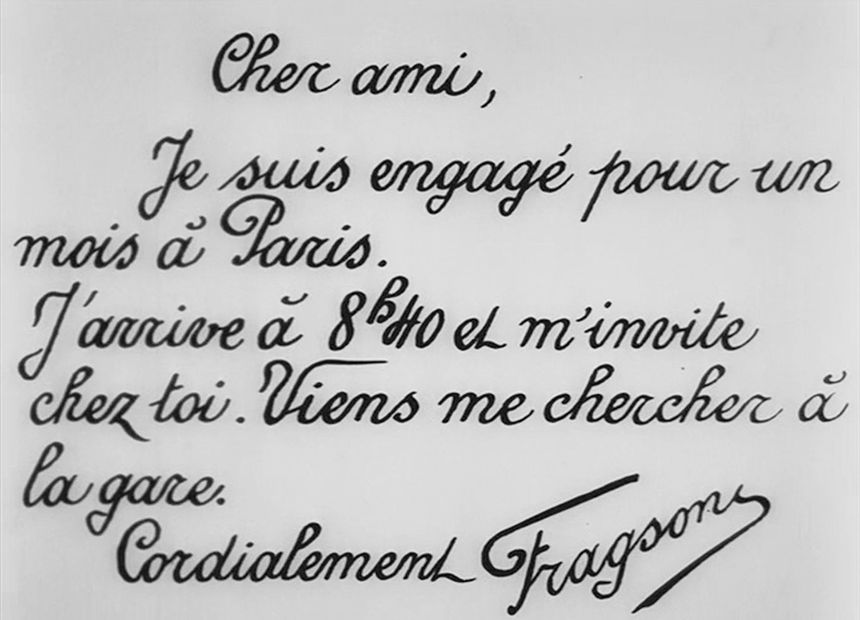 Cher ami,
Je suis engagé pour un
mois à Paris.
J'arrive à 8h40 et m'invite
chez toi. Viens me chercher à
la gare.
Cordialement Fragson